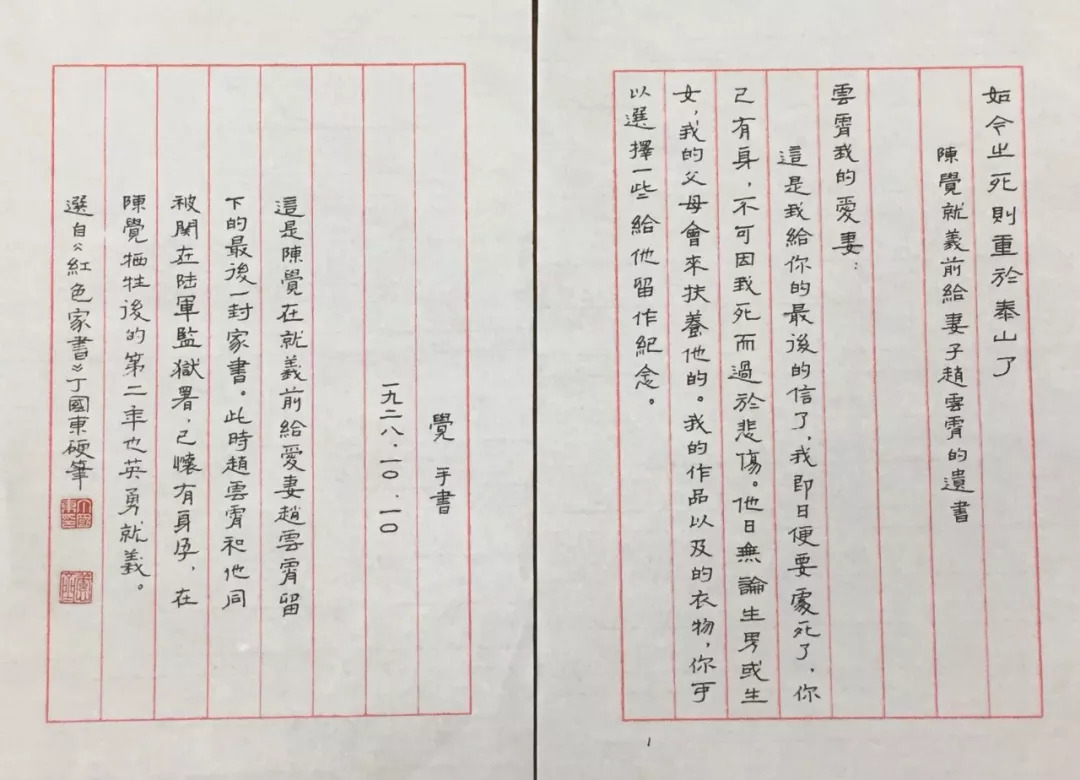 如今之死則重於泰山了
陳覺就義前給妻子趙雲霄的遺書
雲霄我的愛妻：
這是我給你的最後的信了，我即日便要處死了，你
已有身，不可因我死而過於悲傷。他日無論生男或生
女，我的父母會來扶養他的。我的作品以及的衣物，你可
以選擇一些給他留作紀念。
1
覺 手書
一九二八.一〇.一〇
這是陳覺在就義前給愛妻趙雲霄留
下的最後一封家書。此時趙雲霄和他同
被関在陸軍監獄署，已懷有身孕，在
陳覺牺牲後的第二年也英勇就義。
選自《紅色家書》丁國東硬筆